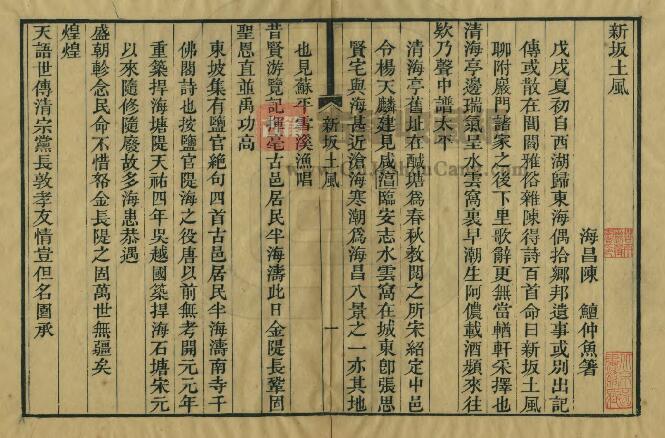 新坂土風
海昌陳　鱣仲魚著
戊戌夏初自西湖歸東海偶拾鄉邦遺事或別出記
傳或散在閭閻雅俗雜陳得詩百首命曰新坂土風
聊附嚴門諸家之後下里歌辭更無當輶軒采擇也
清海亭邊瑞氣呈水雲窩裏早潮生阿儂載酒頻來往
欸乃聲中譜太平
清海亭舊址在鹹塘爲春秋教閱之所宋紹定中邑
令楊天麟建見咸淳臨安志水雲窩在城東卽張思
賢宅與海甚近滄海寒潮爲海昌八景之一亦其地
新坂土風
一
也見蘇平雪溪漁唱
昔賢游覽記揮毫古邑居民半海濤此日金隄長鞏固
聖恩直並禹功高
東坡集有鹽官絶句四首古邑居民半海濤南寺千
佛閣詩也按鹽官隄海之役唐以前無考開元元年
重築捍海塘隄天祐四年吳越國築捍海石塘宋元
以來隨修隨廢故多海患恭遇
盛朝軫念民命不惜帑金長隄之固萬世無疆矣
煌煌
天語世傳清宗黨長敦孝友情豈但名園承